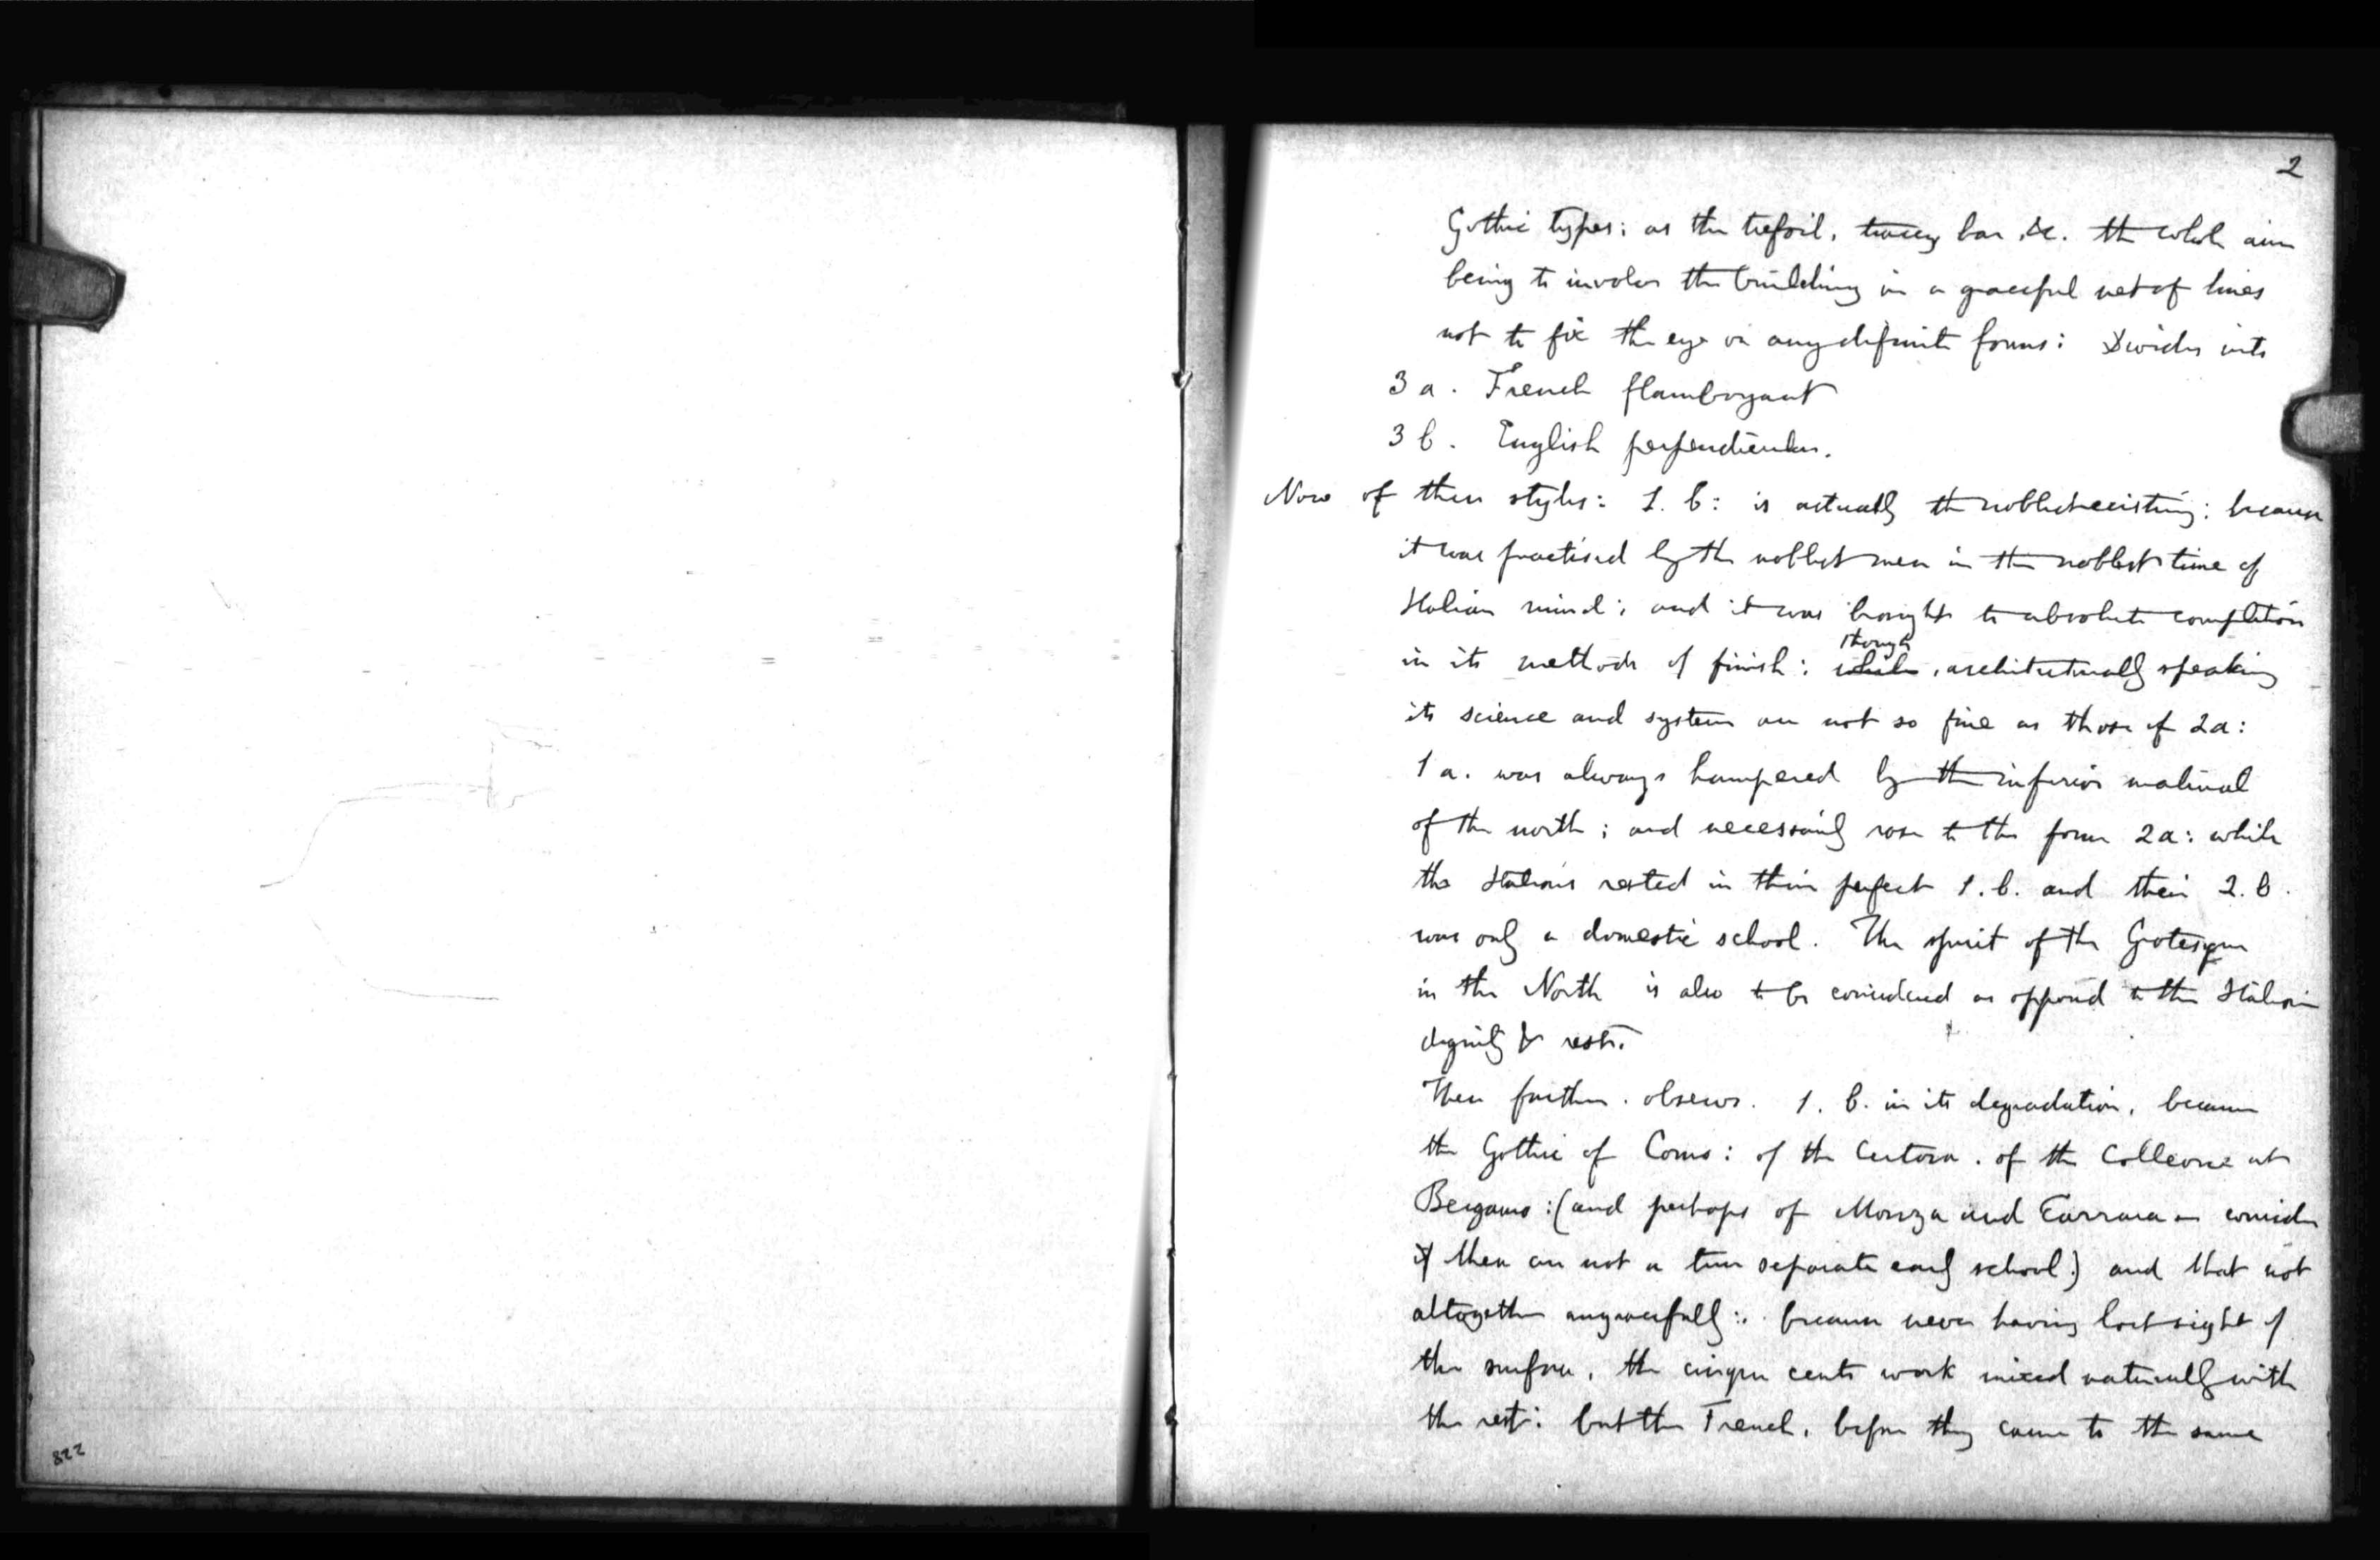 2
Gothic types: as the trefoil, tracery bar, &c. the whole aim
being to involve the building in a graceful net of lines
not to fix the eye on any definite forms: Divides into
3 a. French flamboyant
3 b. English perpendicular.
Now of these styles: 1. b: is actually the noblest existing: because
it was practised by the noblest men in the noblest time of
Italian mind; and it was brought to absolute completion
though
in its methods of finish: while, architecturally speaking
its science and system are not so fine as those of 2a:
1 a. was always hampered by the inferior material
of the north; and necessarily rose to the form 2a: while
the Italians rested in their perfect 1. b. and their 2. b.
was only a domestic school. The spirit of the Grotesque
in the North is also to be considered as opposed to the Italian
dignity & rest.
Then further. observe. 1. b. in its degradation, became
the Gothic of Como: of the Certosa. of the Colleone at
Bergamo: (and perhaps of Monza and Carrara - consider
if these are not a true separate early school) and that not
altogether ungracefully: because never having lost sight of
the surface, the cinque cento work mixed naturally with
the rest: but the French, before they came to the same
822